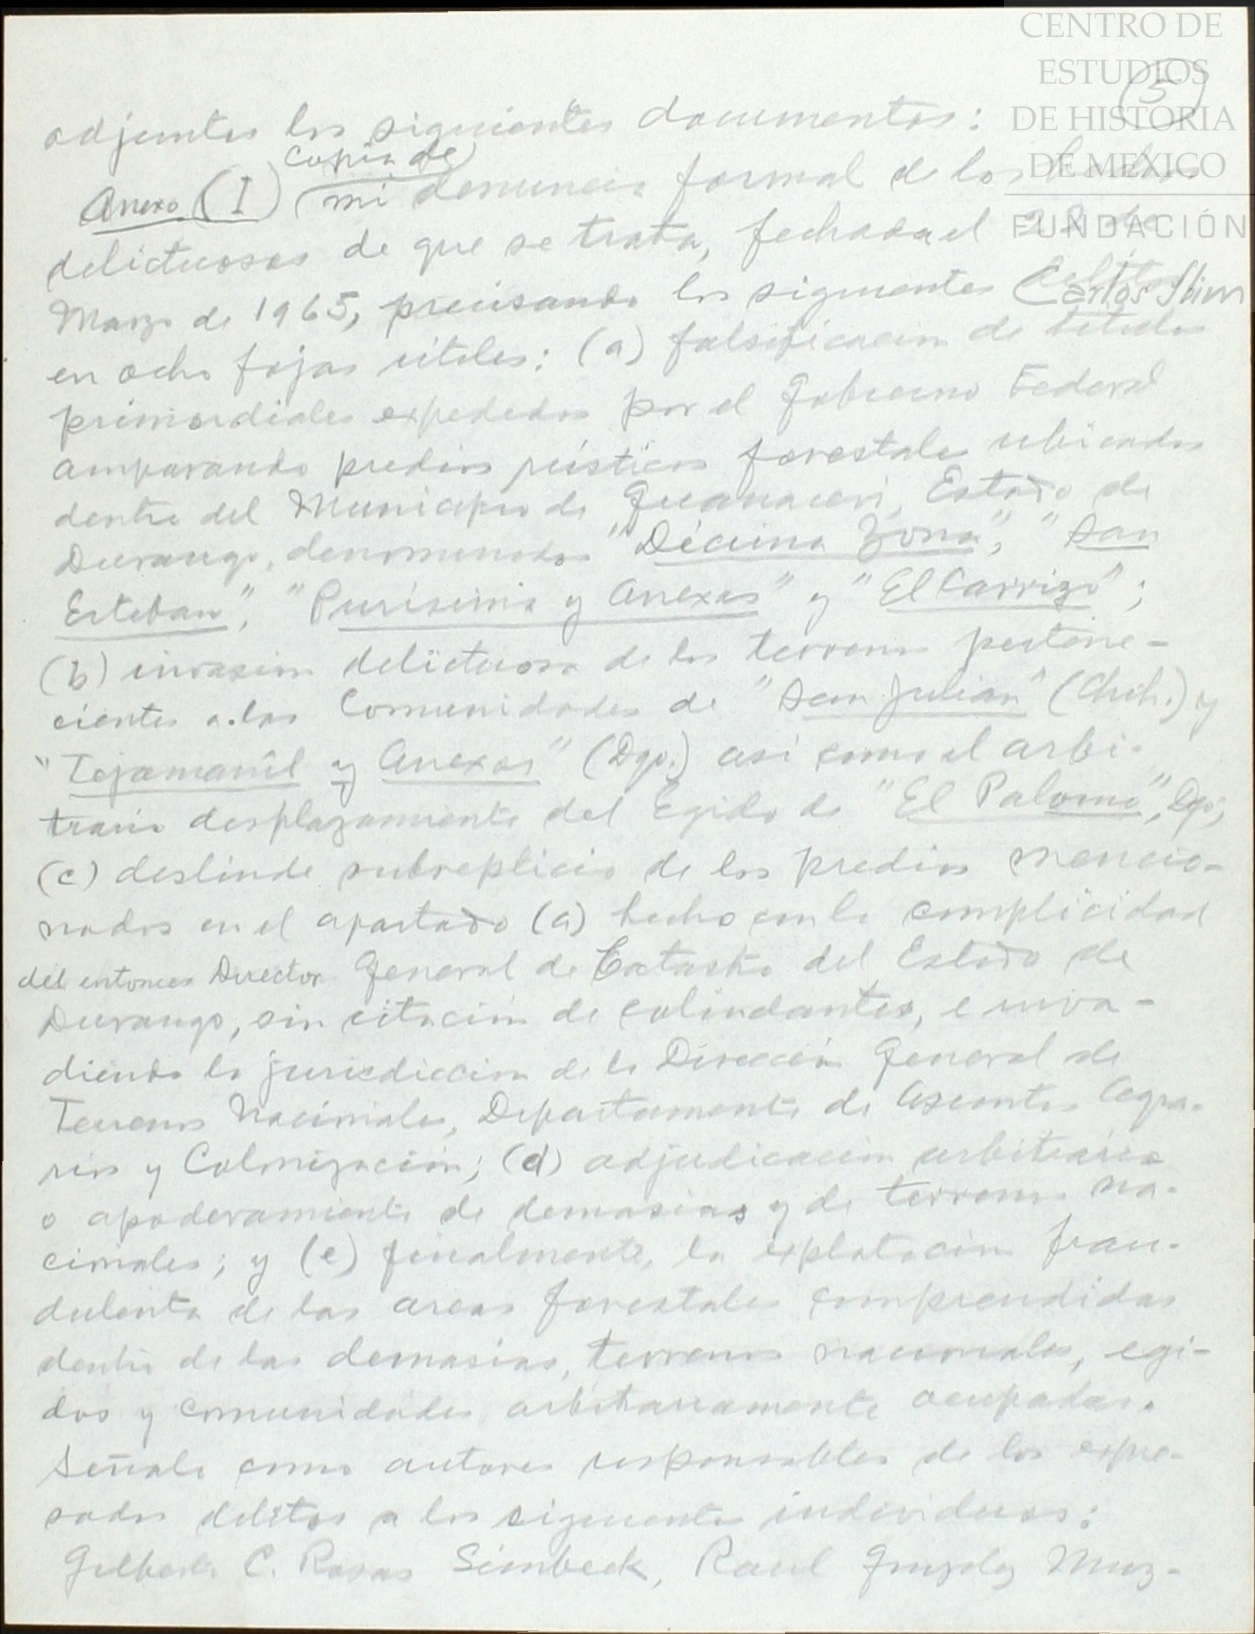 CENTRO DE
ESTUDIOS
DE HISTORIA
DE MEXICO
FUNDACIÓN
Carlos Slim
(5)
adjuntos los siguientes documentos:
Anexo (I) copia de mi denuncia formal de los hechos
delictuosos de que se trata, fechada el de
Marzo de 1965, precisando los siguientes delitos
en ocho fojas utiles: (a) falsificacion de titulos
primordiales expedidos por el Gobierno Federal
amparando predios rústicos forestales ubicados
dentro del Municipio de Guanacevi, Estado de
Durango, denominados "Décima Zona", "San
Esteban", "Purisima y Anexas" y "El Carrizo";
(b) invasion delictuosa de los terrenos pertene-
cientes a las Comunidades de "San Julian" (Chih.) y
"Tejamanil y Anexos" (Dgo.) asi como el arbi-
trario desplazamiento del Egido de "El Palomo", Dgo;
(c) deslinde subrepticio de los predios mencio-
nados en el apartado (a) hecho con la complicidad
del entonces Director General de Catastro del Estado de
Durango, sin citación de colindantes, e inva-
diendo la jurisdiccion de la Dirección General de
Terrenos Nacionales, Departamento de Asuntos Agra-
rios y Colonización; (d) adjudicacion arbitraria
o apoderamiento de demasias y de terrenos na-
cionales; y (e) finalmente, la explotacion frau-
dulenta de las areas forestales comprendidas
dentro de las demasias, terrenos nacionales, egi-
dos y comunidades arbitrariamente ocupadas.
Señalo como autores responsables de los expre-
sados delitos a los siguientes individuos:
Gilberto C. Rosas Simbeck, Raul Gonzalez Muz-